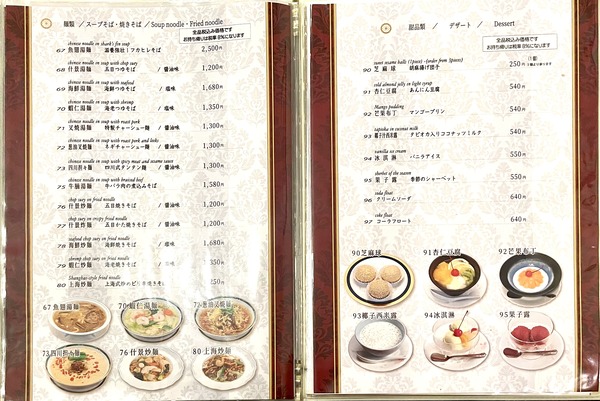 麺類 ／スープそば・焼きそば ／Soup noodle・Fried noodle
全品税込み価格です
お持ち帰りは税率8%になります
chinese noodle in shark's fin soup
67 魚翅湯麺 フカヒレそば 2,500円
chinese noodle in soup with chop suey
68 什景湯麺 五目つゆそば ／醤油味 1,200円
chinese noodle in soup with seafood
69 海鮮湯麺 海鮮つゆそば ／塩味 1,680円
chinese noodle in soup with shrimp
70 蝦仁湯麺 海老つゆそば ／塩味 1,350円
chinese noodle in soup with roast pork
71 叉焼湯麺 特製チャーシュー麺 ／醤油味 1,300円
chinese noodle in soup with roast pork and leeks
72 葱油叉焼麺 ネギチャーシュー麺 ／醤油味 1,300円
chinese noodle in soup with spicy meat and sesame sauce
73 四川担々麺 四川式タンタン麺 ／醤油味 1,300円
chinese noodle in soup with braised beef
75 牛腩湯麺 牛バラ肉の煮込みそば 1,580円
chop suey on fried noodle
76 什景炒麺 五目焼きそば ／醤油味 1,200円
chop suey on crispy fried noodle
77 什景炒麺 五目かた焼きそば ／醤油味 1,200円
seafood chop suey on fried noodle
78 海鮮炒麺 海鮮焼きそば ／塩味 1,680円
shrimp chop suey on fried noodle
79 蝦仁炒麺 海老焼きそば ／塩味 350円
Shanghai-style fried noodle
80 上海炒麺 上海式炒めビーフン焼きそば 250円
67魚翅湯麺 70蝦仁湯麺 72葱油叉焼麺
73四川担々麺 76什景炒麺 80上海炒麺
甜品類 ／ デザート ／ Dessert
全品税込み価格です
お持ち帰りは税率8%になります
tunes sesami balls (1piece) -(order from 3pieces)
90 芝麻球 胡麻揚げ団子 250円 (1個)
cold almond jelly in light syrup
91 杏仁豆腐 あんにん豆腐 540円
Mango pudding
92 芒果布丁 マンゴープリン 540円
tapioka in coconut milk
93 椰子西米露 タピオカ入りココナッツミルク 540円
vanilla ice cream
94 冰淇淋 バニラアイス 550円
sherbet of the season
95 菓子露 季節のシャーベット 550円
soda float
96 クリームソーダ 640円
coke float
97 コーラフロート 640円
90芝麻球 91杏仁豆腐 92芒果布丁
93椰子西米露 94冰淇淋 95菓子露